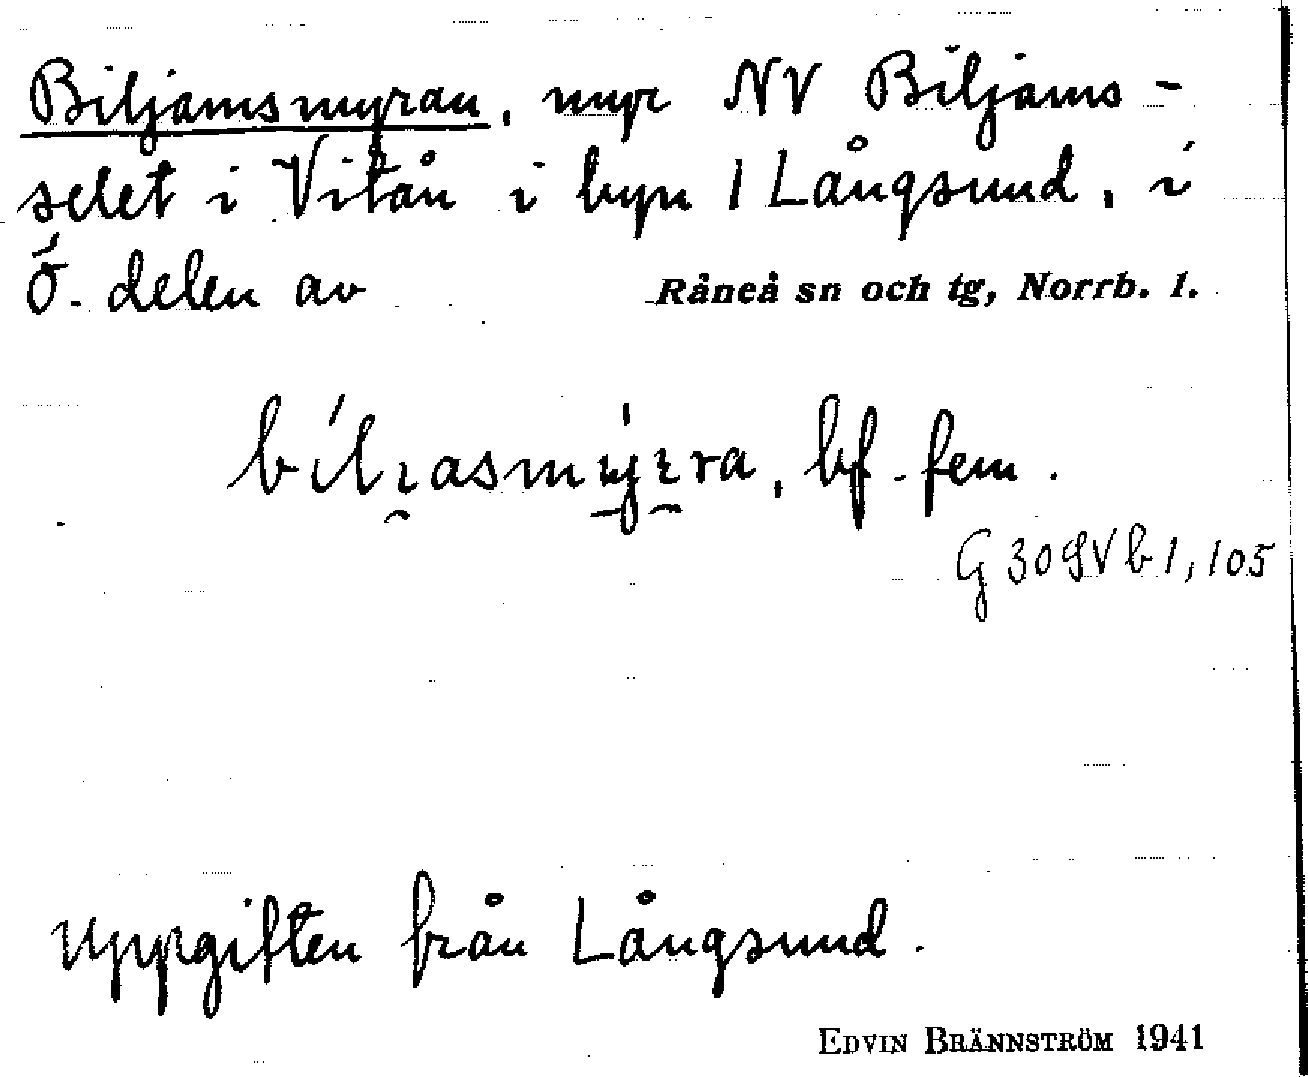 Biljamsmyran, myr NV Biljams-
selet i Vitån i byn 1 Långsund, i
Ö. delen av Råneå sn och tg, Norrb. l.
bf. fem.
G 30 SV b 1, 105
Uppgiften från Långsund.
EDVIN BRÄNNSTRÖM 1941